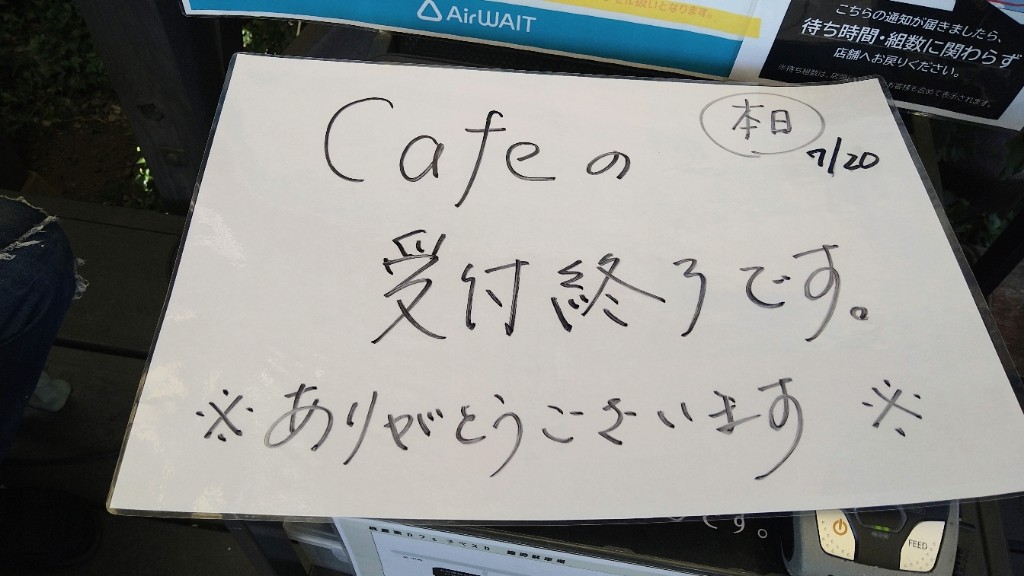 AirWAIT
こちらの通知が届きましたら、
待ち時間・組数に関わらず
店舗へお戻りください。
本日
7/20
Cafeの
受付終了です。
※ありがとうございます※
FEED